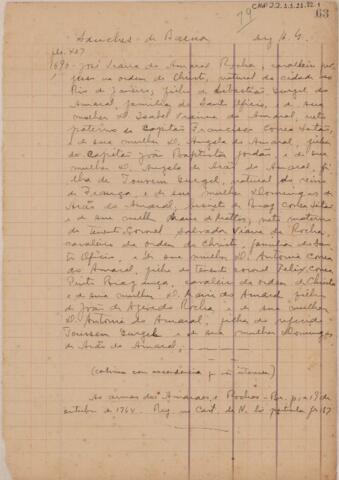 79 CMH 2.2.1.1.21.82.1
63
Sanches de Baena
pls. 427
1690 - José Viana do Amaral Rocha, cavaleiro
na ordem de Christo, natural da cidade do
Rio de Janeiro; filho de Sebastião Gurgel do
Amaral, familiar do Santo Oficio, e de sua
mulher D. Isabel Viana do Amaral, neto
paterno do Capitão Francisco Correa Leitão,
e de sua mulher D. Angela do Amaral, filha
do Capitão João Baptista Jordão e de sua
mulher D. Angela de Arão do Amaral, fi-
lha de Toussem Gurgel, natural do reino
de França, e de sua mulher Domingas de
Arão do Amaral, bisneto de Braz Correa
e de sua mulher Maria de Mattos; neto materno
do Tenente Coronel Salvador Viana da Rocha,
cavaleiro da ordem de Christo, familiar do San-
to Oficio, e de sua mulher D. Antonia Correa
do Amaral, filha do Tenente coronel Felix Correa
Pinto Bragança, cavaleiro da ordem de Christo
e de sua mulher D. Maria do Amaral, filha
de João de Azevedo Rocha, e de sua mulher
D. Antonia do Amaral, filha do referido
Toussem Gurgel e de sua mulher Domingas
de Arão do Amaral.
As armas dos Amaraes, e Rochas - Br. p. a 19 de
outubro de 1764. Reg. no Cart. da N.